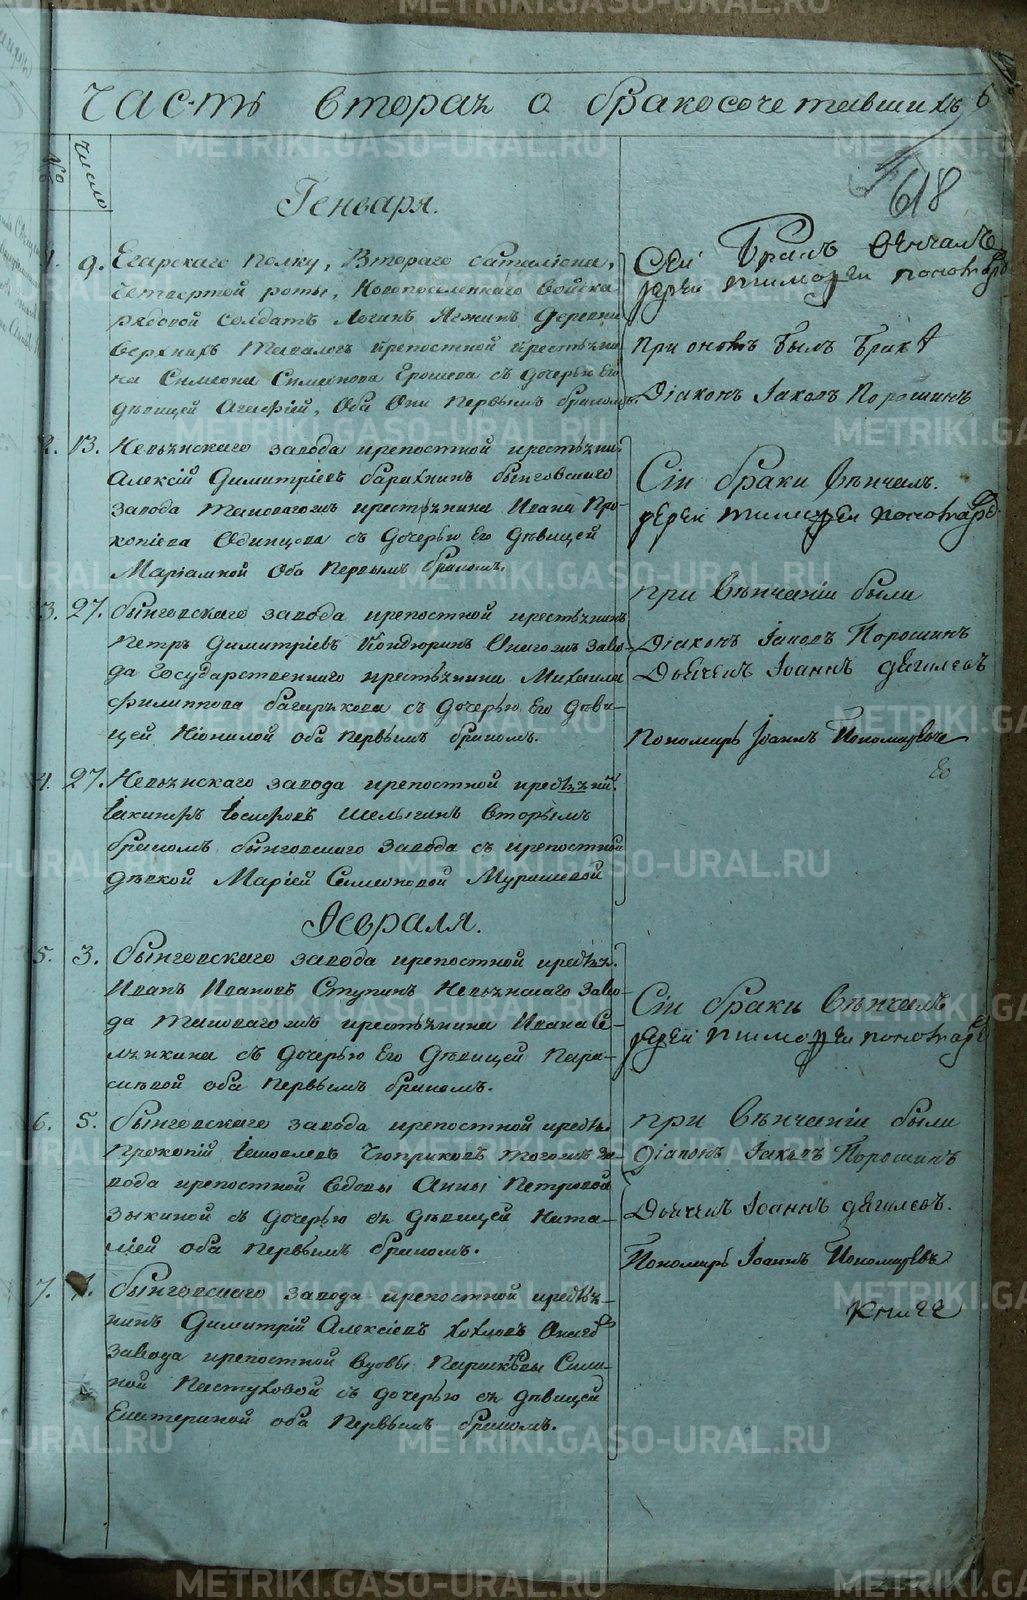 Часть вторая о бракосочетавшихъ
6
618
№
Число
Генваря.
1. 9. Егарскаго полку, Втораго баталіона,
четвертой роты, Новопоселеннаго войска
рядовой солдатъ Логинъ деревни
верхнихъ Таволог крепостной крестьяни
на Симеона Симеонова Ерошева съ дочерью Его
девицей Агафіей, Оба Они первымъ бракомъ.
Сей Бракъ венчалъ
іерей Тимофей Пономаре
при ономъ былъ
Діаконъ Іаковъ Порошинъ
2. 13. Невьянскаго завода крепостной крестьянинъ
Алексій Димитріевъ быньговскаго
завода таковагожъ крестьянина Ивана Про-
копіева Одинцова съ дочерью Его девицей
Маріамной Оба первымъ бракомъ.
Сіи браки венчалъ.
іерей Тимофей Пономаре
3. 27. быньговскаго завода крепостной крестьянинъ
Петръ Димитріевъ Кондюринъ Онагожъ заво-
да Государственнаго крестьянина Михаила
Филиппова с дочерью Его деви-
цей Неонилой оба первымъ бракомъ.
при венчаніи были
Діаконъ Іаковъ Порошинъ
Дьячекъ Іоаннъ дягилевъ
Пономарь Іоаннъ Пономарев
4. 27. Невьянскаго завода крепостной
Іакинфъ Іосифовъ Шелыгинъ Вторымъ
бракомъ быньговскаго завода съ крепостной
девкой Маріей Симеоновой Мурашевой
Февраля.
5. 3. быньговскаго завода крепостной крестьян.
Иванъ Ивановъ Ступинъ Невьянскаго заво-
да таковагожъ крестьянина Ивана Се-
лянкина съ дочерью Его девицей Пара-
скевой оба первымъ бракомъ.
Сіи браки венчалъ
іерей Тимофей Пономаре
6. 5. быньговскаго завода крепостной крестья
Прокопій Іаковлевъ Чюприковъ тогожъ за-
вода крепостной вдовы Анны Петровой
Зыкиной съ дочерью ея девицей Ната-
ліей оба первымъ бракомъ.
при венчаніи были
діаконъ Іаковъ Порошинъ
Дьячекъ Іоаннъ дягилевъ.
Пономарь Іоаннъ Пономаревъ
7. быньговскаго завода крепостной крестья-
нинъ Димитрій Алексіевъ Хохловъ Онаго
завода крепостной вдовы Параскевы
ной Пастуховой съ дочерью ея девицей
Екатериной оба первымъ бракомъ.
METRIKI.GASO-URAL.RU